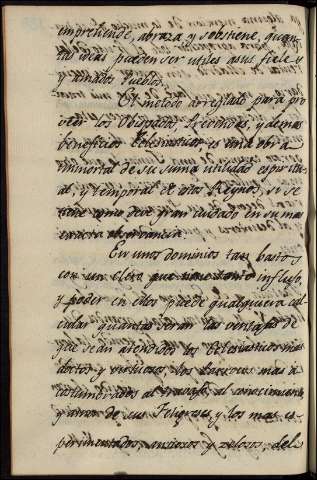 emprehende, abraza, y sobstiene, quan
tas ideas pueden ser utiles a sus fieles
y amados Pueblos.
El metodo arreglado para pro
veer los Obispados, Prevendas, y demas
beneficios Eclesiasticos es una obra
inmortal de su suma utilidad espiritu
al, y temporal de estos Reynos, si se
tiene como debe gran cuidado en su mas
exacta observancia.
En unos dominios tan bastos y
con un clero que tiene tanto influjo,
y poder en ellos puede qualquiera cal
cular quantas seran las ventajas de
que sean atendidos los Eclesiasticos mas
doctos y virtuosos, los Parrocos mas a
costumbrados al travajo, al conocimiento
y amor de sus Feligreses, y los mas es
perimentados, ansiosos y zelosos, del